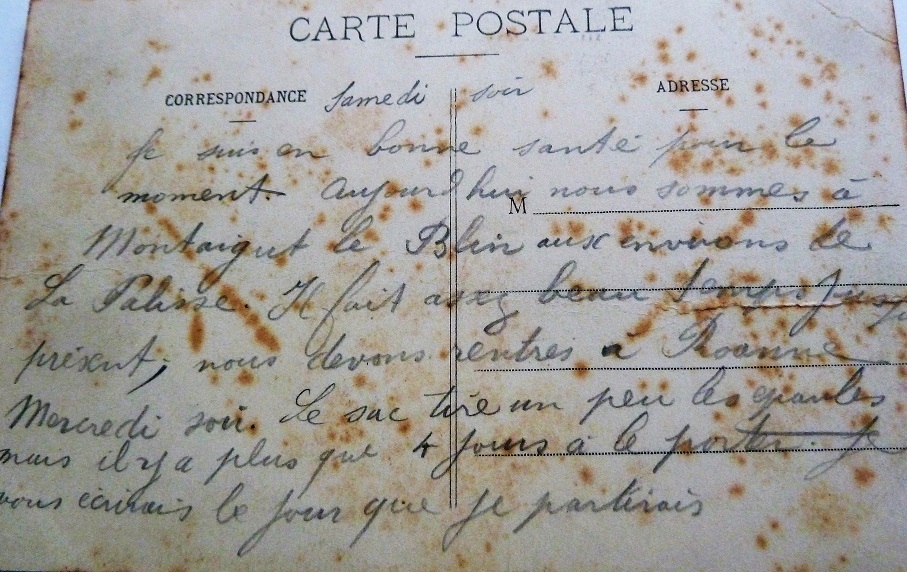 CARTE POSTALE
CORRESPONDANCE Samedi soir ADRESSE
Je suis en bonne santé pour le
moment. Aujourd'hui nous sommes à
M
Montaigut le Blin aux environs de
La Palisse. Il fait assez beau temps jusqu'
présent, nous devons rentrer à Roanne
Mercredi soir. Le sac tire un peu les épaules
mais il y a plus que 4 jours à le porter. Je
vous écrirais le jour que je partirais